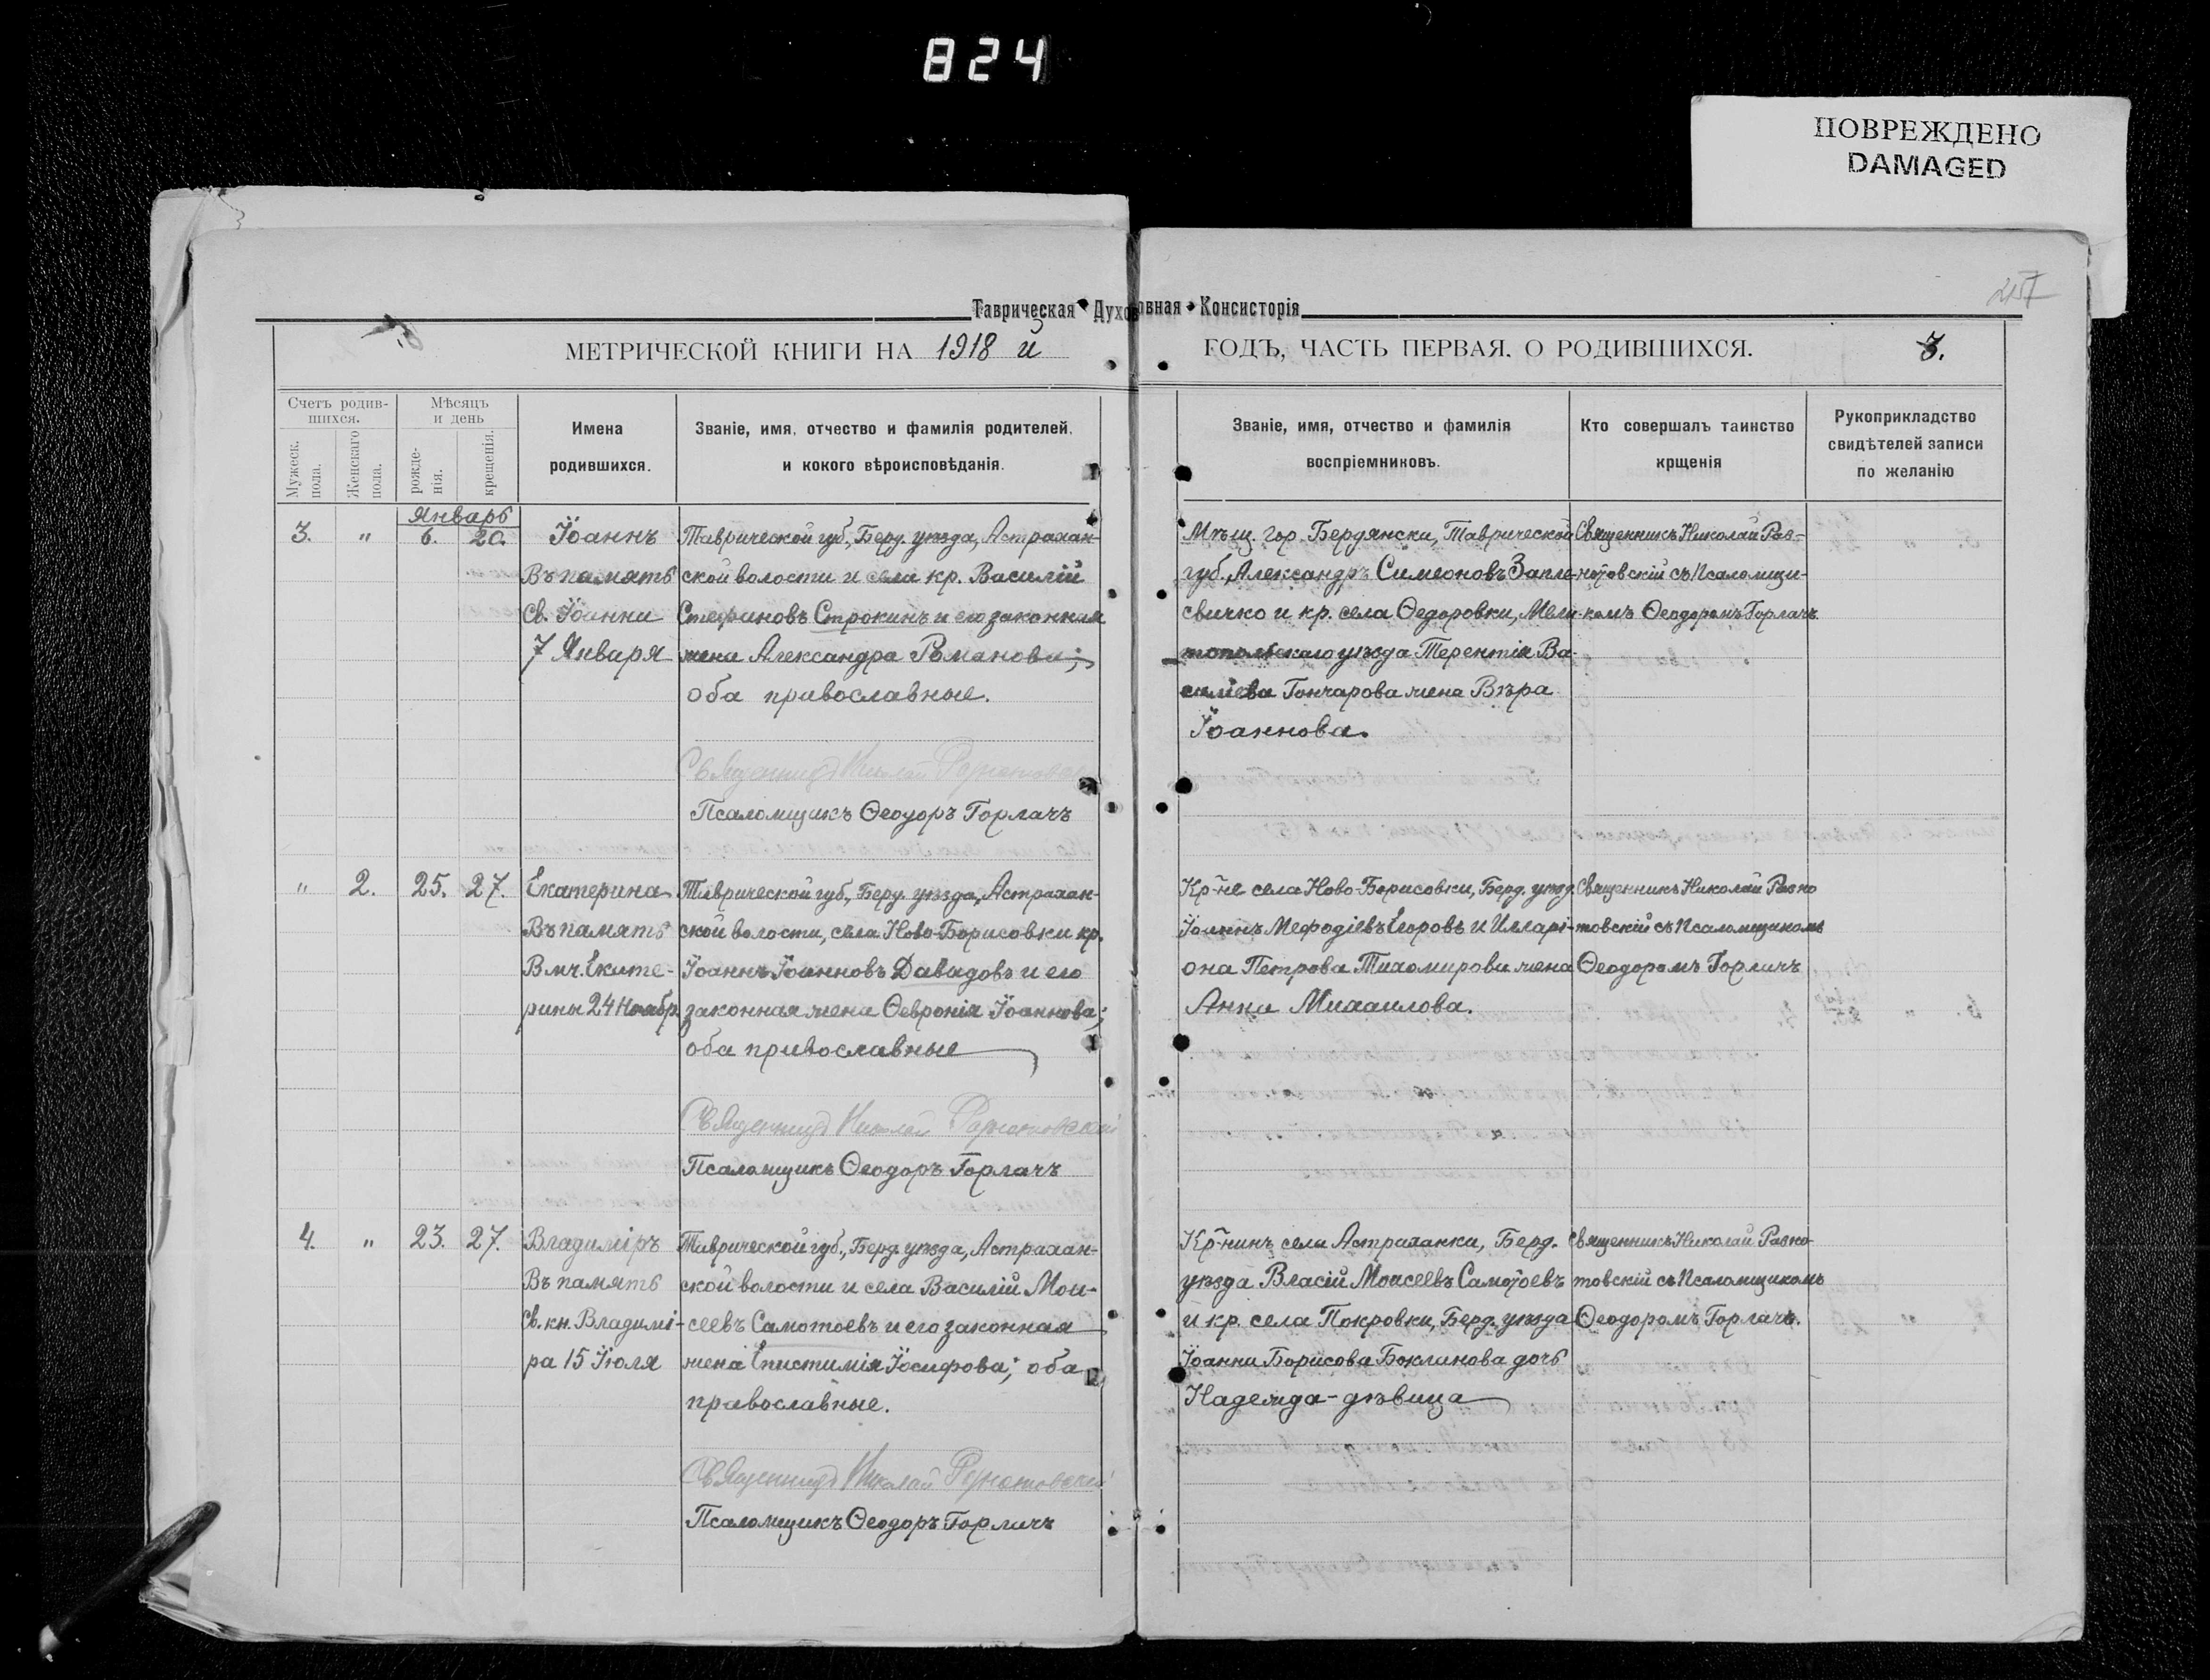 824
ПОВРЕЖДЕНО
DAMAGED
Таврическая Духовная Консисторія
МЕТРИЧЕСКОЙ КНИГИ НА 1918 й
ГОДЪ, ЧАСТЬ ПЕРВАЯ. О РОДИВШИХСЯ.
Счетъ родив-
шихся.
Мужеск. пола.
Женскаго пола.
Мѣсяцъ
и день
рожде-
нія.
крещенія.
Имена
родившихся.
Званіе, имя, отчество и фамилія родителей.
и кокого вѣроисповѣданія.
Званіе, имя, отчество и фамилія
воспріемниковъ.
Кто совершалъ таинство
крщенія
Рукоприкладство
свидѣтелей записи
по желанію
Январь
3. " 6. 20.
Іоаннъ
Въ память
Св. Іоанна
7 Января
Таврической губ., Берд. уѣзда, Астрахан-
ской волости и села кр. Василій
Стефановъ Строкинъ и его законная
жена Александра Романова;
оба православные.
Священникъ Николай
Псаломщикъ Ѳеодоръ Горлачъ
Мѣщ. гор. Бердянска, Таврической
губ. Александръ Симеоновъ Запле-
свичко и кр. села Ѳедоровки, Мели-
топольскаго уѣзда Терентія Ва-
силіева Гончарова жена Вѣра
Іоаннова.
Священникъ Николай Раз-
нотовскій съ Псаломщи-
комъ Ѳеодоромъ Горлачъ
" 2. 25. 27.
Екатерина
Въ память
Вмч. Екате-
рины 24 Ноябр.
Таврической губ., Берд. уѣзда, Астрахан-
ской волости, села Ново-Борисовки кр.
Іоаннъ Іоанновъ Давидовъ и его
законная жена Ѳевронія Іоаннова;
оба православные
Священникъ Николай Разнотовскій
Псаломщикъ Ѳеодоръ Горлачъ
Кр-не села Ново-Борисовки, Берд. уѣзд.
Іоаннъ Мефодіевъ Егоровъ и Илларі-
она Петрова Тихомирова жена
Анна Михаилова.
Священникъ Николай Разно
товскій съ Псаломщикомъ
Ѳеодоромъ Горлачъ
4. " 23. 27.
Владиміръ
Въ память
Св. кн. Владимі-
ра 15 Іюля
Таврической губ., Берд. уѣзда, Астрахан-
ской волости и села Василій Мои-
сеевъ Самотоевъ и его законная
жена Епистимія Іосифова; оба
православные.
Священникъ Николай Разнотовскій
Псаломщикъ Ѳеодоръ Горлачъ
Кр-нинъ села Астраханки, Берд.
уѣзда Власій Моисеевъ Самотоевъ
и кр. села Покровки, Берд. уѣзда
Іоанна Борисова Боклинова дочь
Надежда - дѣвица
Священникъ Николай Разно-
товскій съ Псаломщикомъ
Ѳеодоромъ Горлачъ.